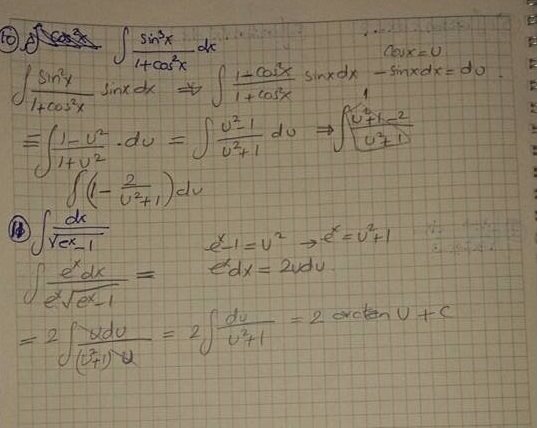 10) ∫ sin³x / 1+cos²x dx
cosx = u
∫ sin²x / 1+cos²x sinx dx ⇒ ∫ 1-cos²x / 1+cos²x sinx dx -sinx dx = du
= ∫ 1-u² / 1+u² · du = ∫ u²-1 / u²+1 du ⇒ ∫ u²+1-2 / u²+1
∫ (1 - 2 / u²+1) du
11) ∫ dx / √eˣ-1
eˣ-1 = u² → eˣ = u²+1
∫ eˣdx / eˣ√eˣ-1 = eˣdx = 2udu
= 2 ∫ udu / (u²+1) u = 2 ∫ du / u²+1 = 2 arctan u + c